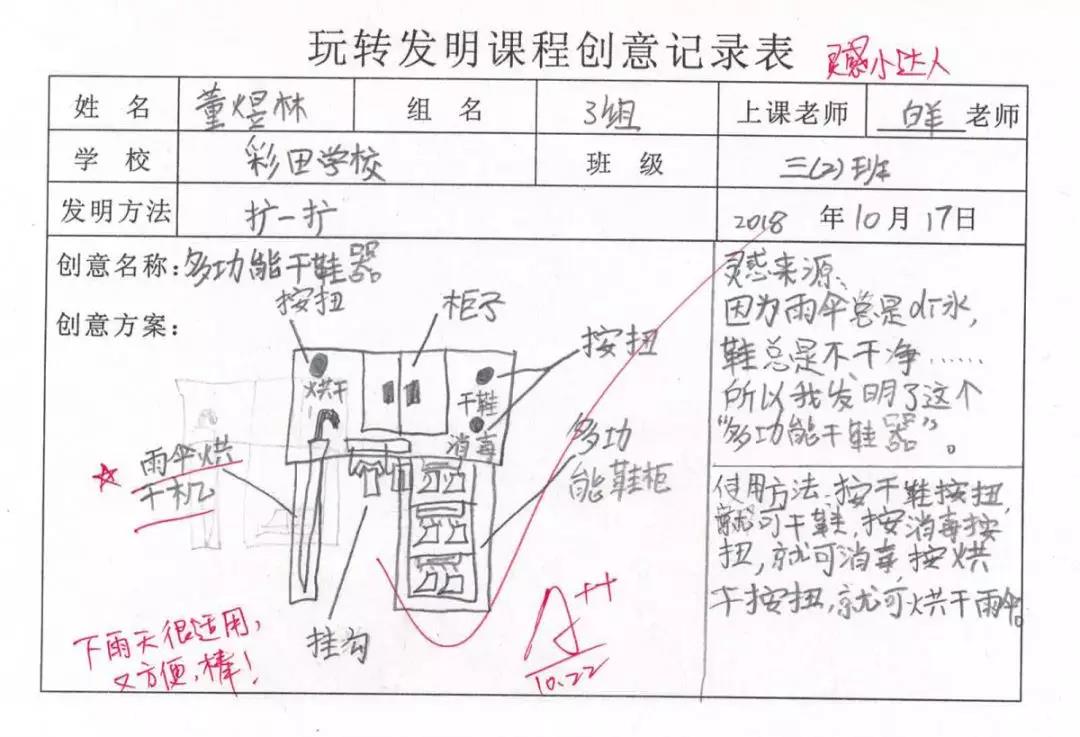 玩转发明课程创意记录表 灵感小达人
姓 名 董煜林 组 名 3组 上课老师 白羊 老师
学 校 彩田学校 班 级 三(2)班
发明方法 扩一扩 2018 年10月17日
创意名称:多功能干鞋器
创意方案:
按扭
柜子
按扭
烘干
干鞋
消毒
雨伞烘
干机
多功
能鞋柜
挂勾
下雨天很适用,
又方便,棒!
A++
10.22
灵感来源、
因为雨伞总是di水,
鞋总是不干净……
所以我发明了这个
“多功能干鞋器”。
使用方法:按干鞋按扭,
就可干鞋,按消毒按
扭,就可消毒,按烘
干按扭,就可烘干雨伞。